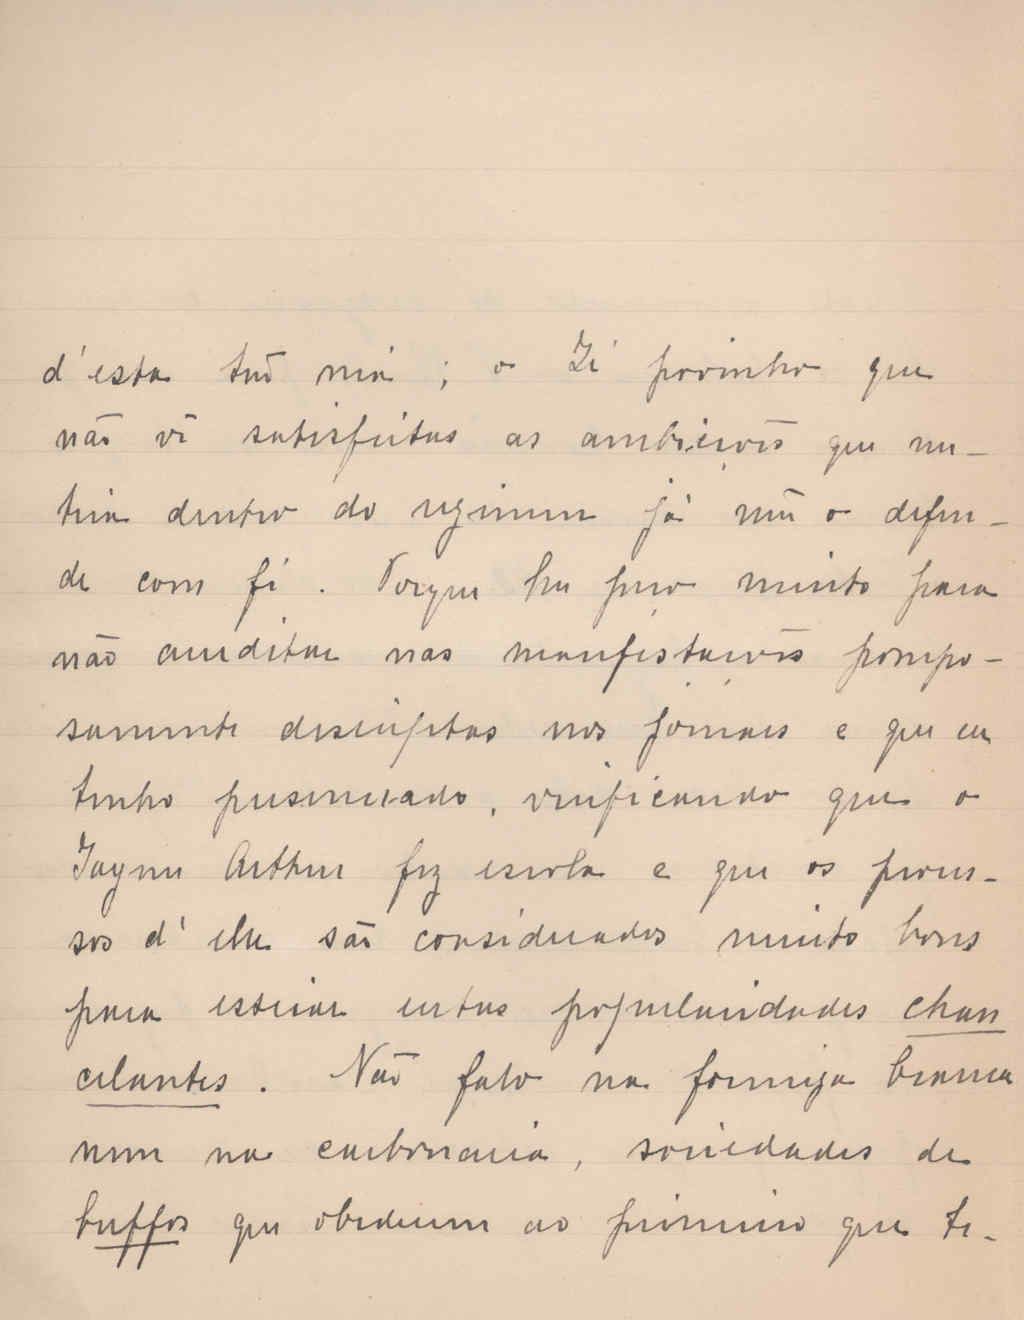 d'esta tão má; o Zé povinho que
não vê satisfeitas as ambições que nu-
tria dentro do regimen já não o defen-
de com fé. Porque ha perro muito para
não acreditar nas manifestações pompo-
samente descriptas nos jornaes e que eu
tenho presenciado, verificando que o
Jayme Arthur fez escola e que os proces-
sos d'elle são considerados muito bons
para estear certas popularidades chan
celantes. Não falo na formiga branca
nem na carbonaria, sociedades de
buffos que obedecem ao primeiro que te-